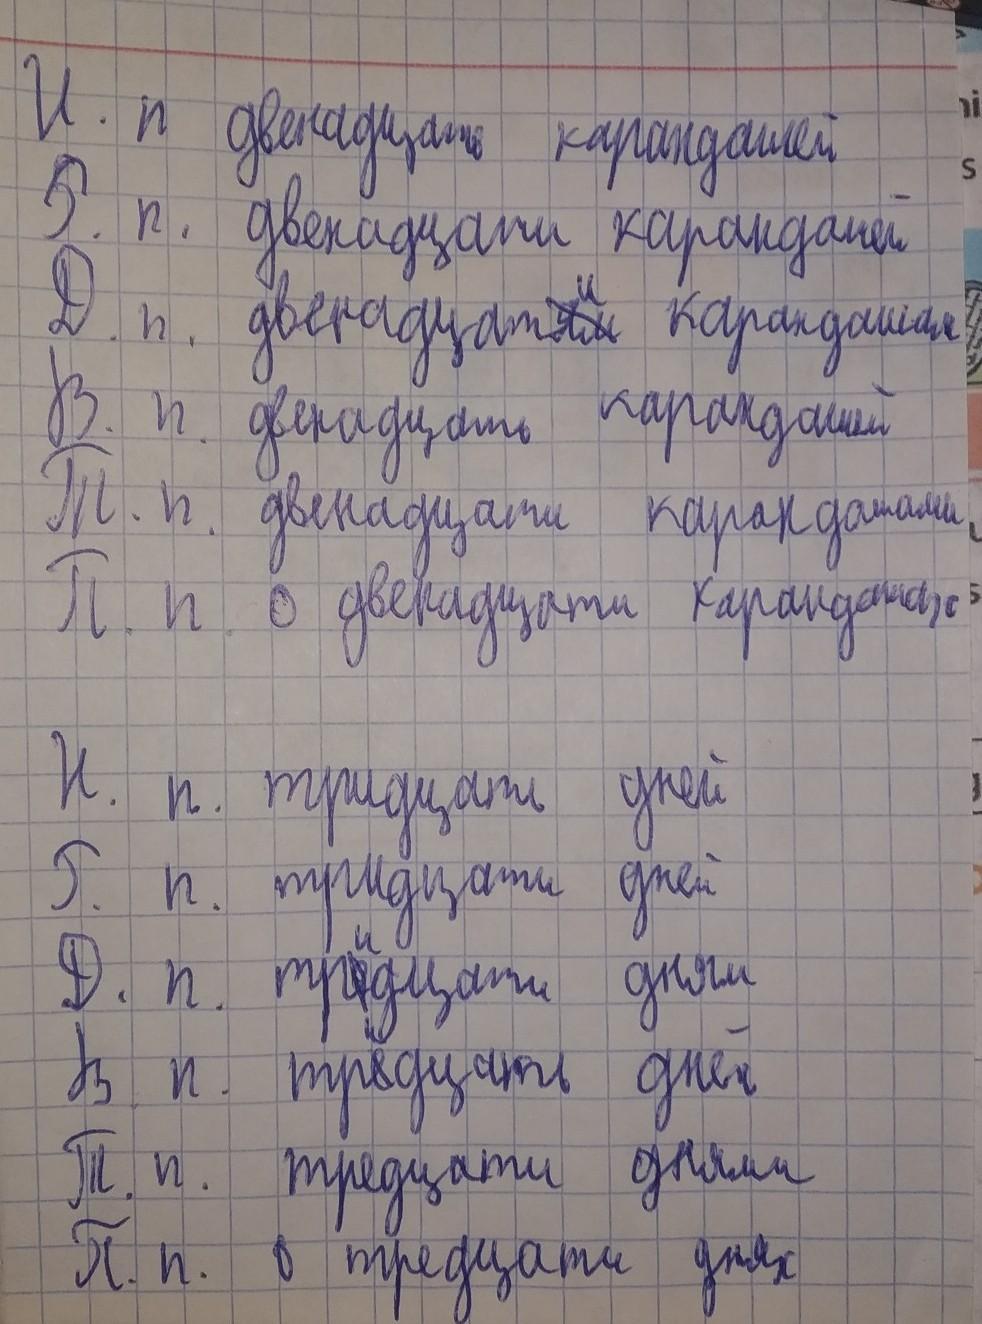 И. п двенадцать карандашей
Г. п. двенадцати карандашей
Д. п. двенадцати карандашам
В. п. двенадцать карандашей
Т. п. двенадцати карандашами
П. п. о двенадцати карандашах
И. п. тридцать дней
Г. п. тридцати дней
Д. п. тридцати дням
В. п. тридцать дней
Т. п. тредцати днями
П. п. о тредцати днях